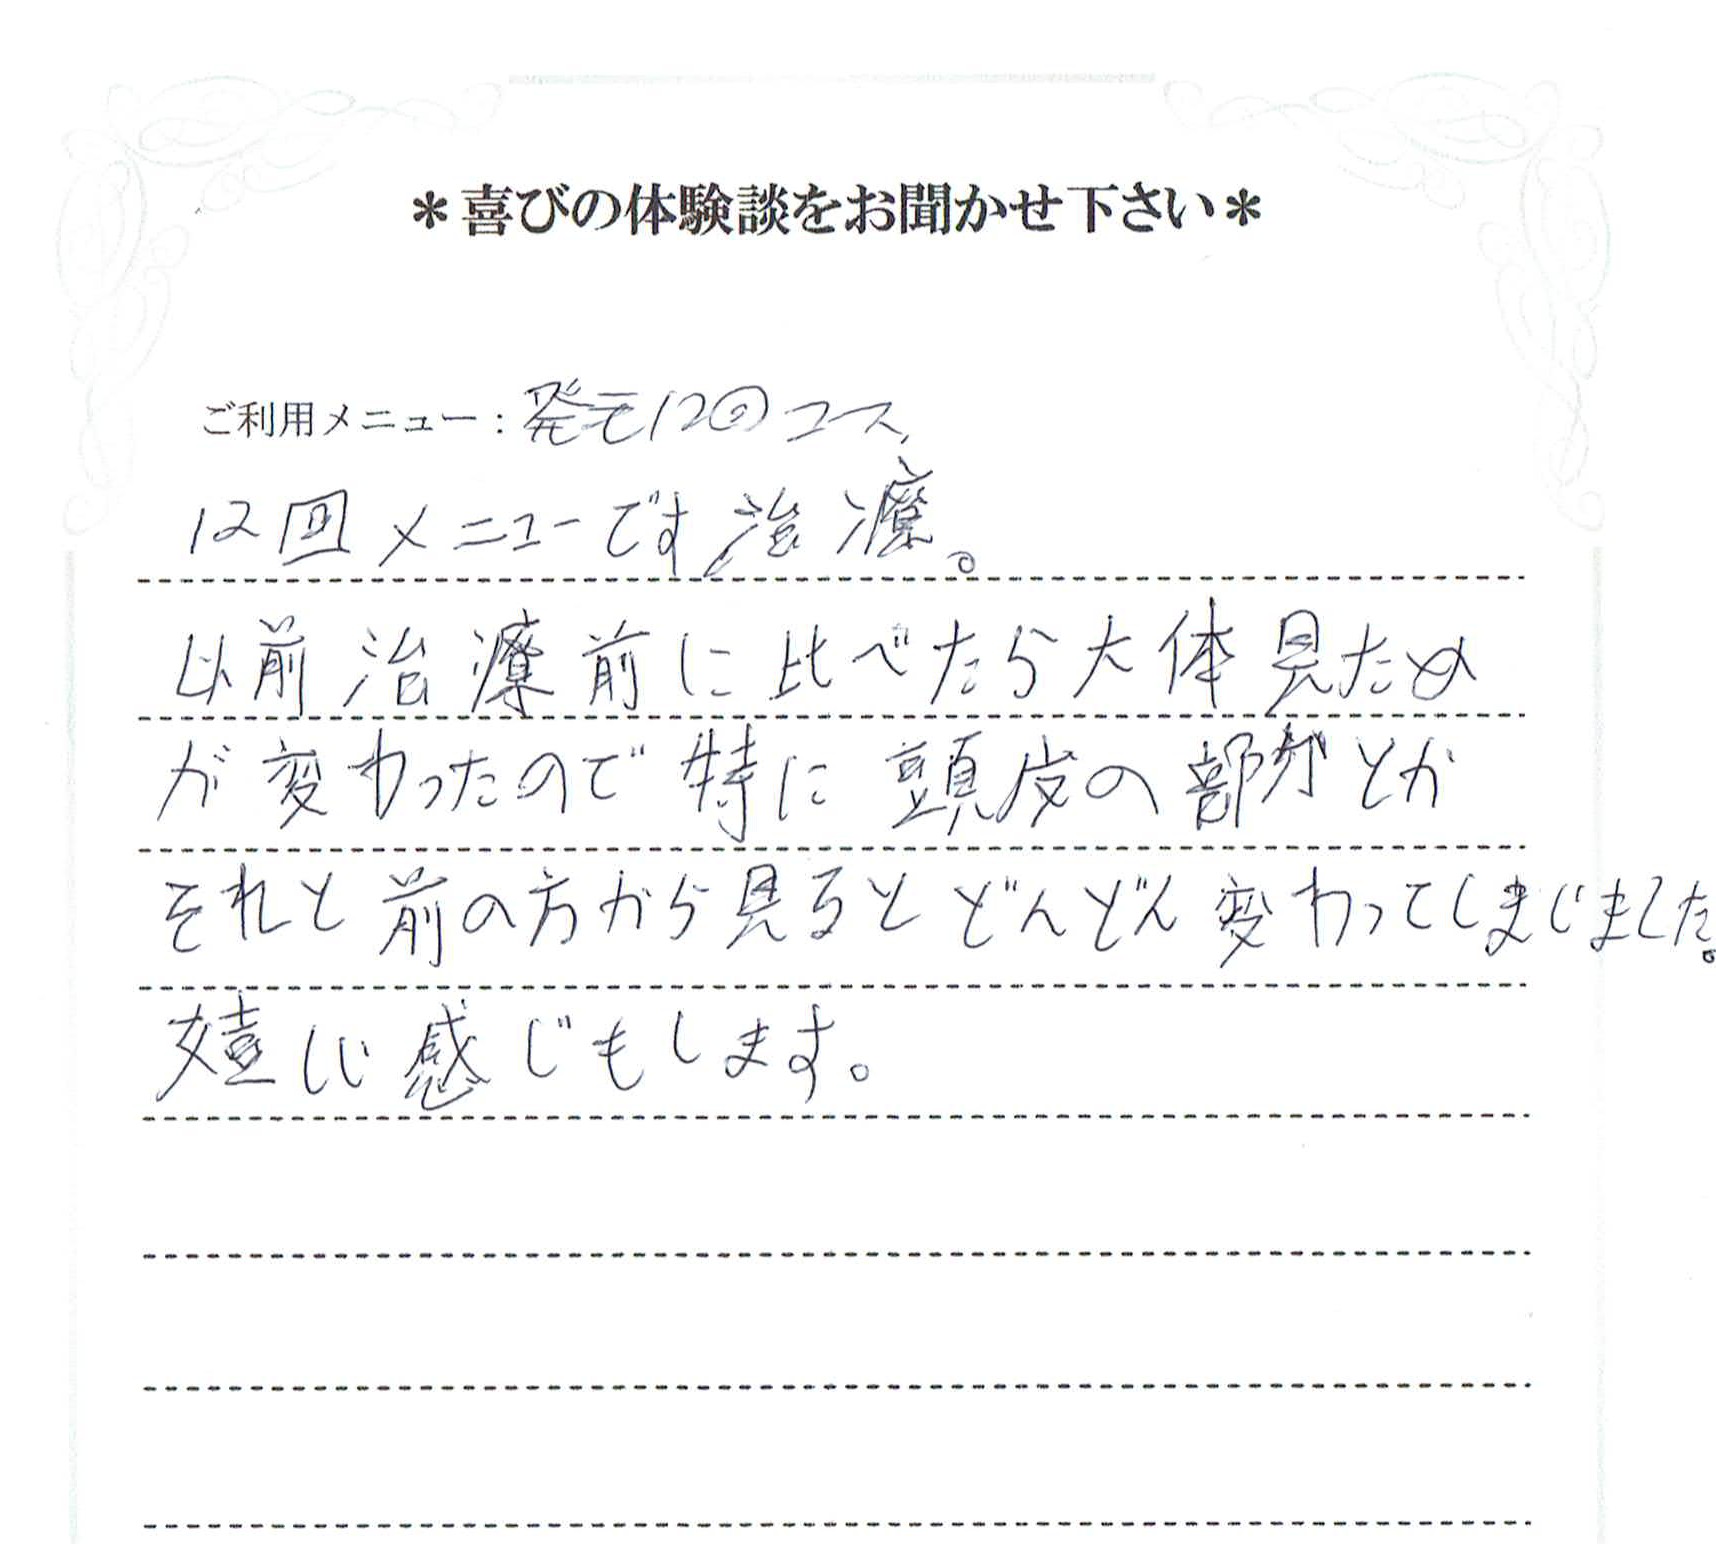 ＊喜びの体験談をお聞かせ下さい＊
ご利用メニュー：発毛12回コース
12回メニューです治療。
以前治療前に比べたら大体見ため
が変わったので特に頭皮の部分とか
それと前の方から見るとどんどん変わってしまじました。
嬉しい感じもします。